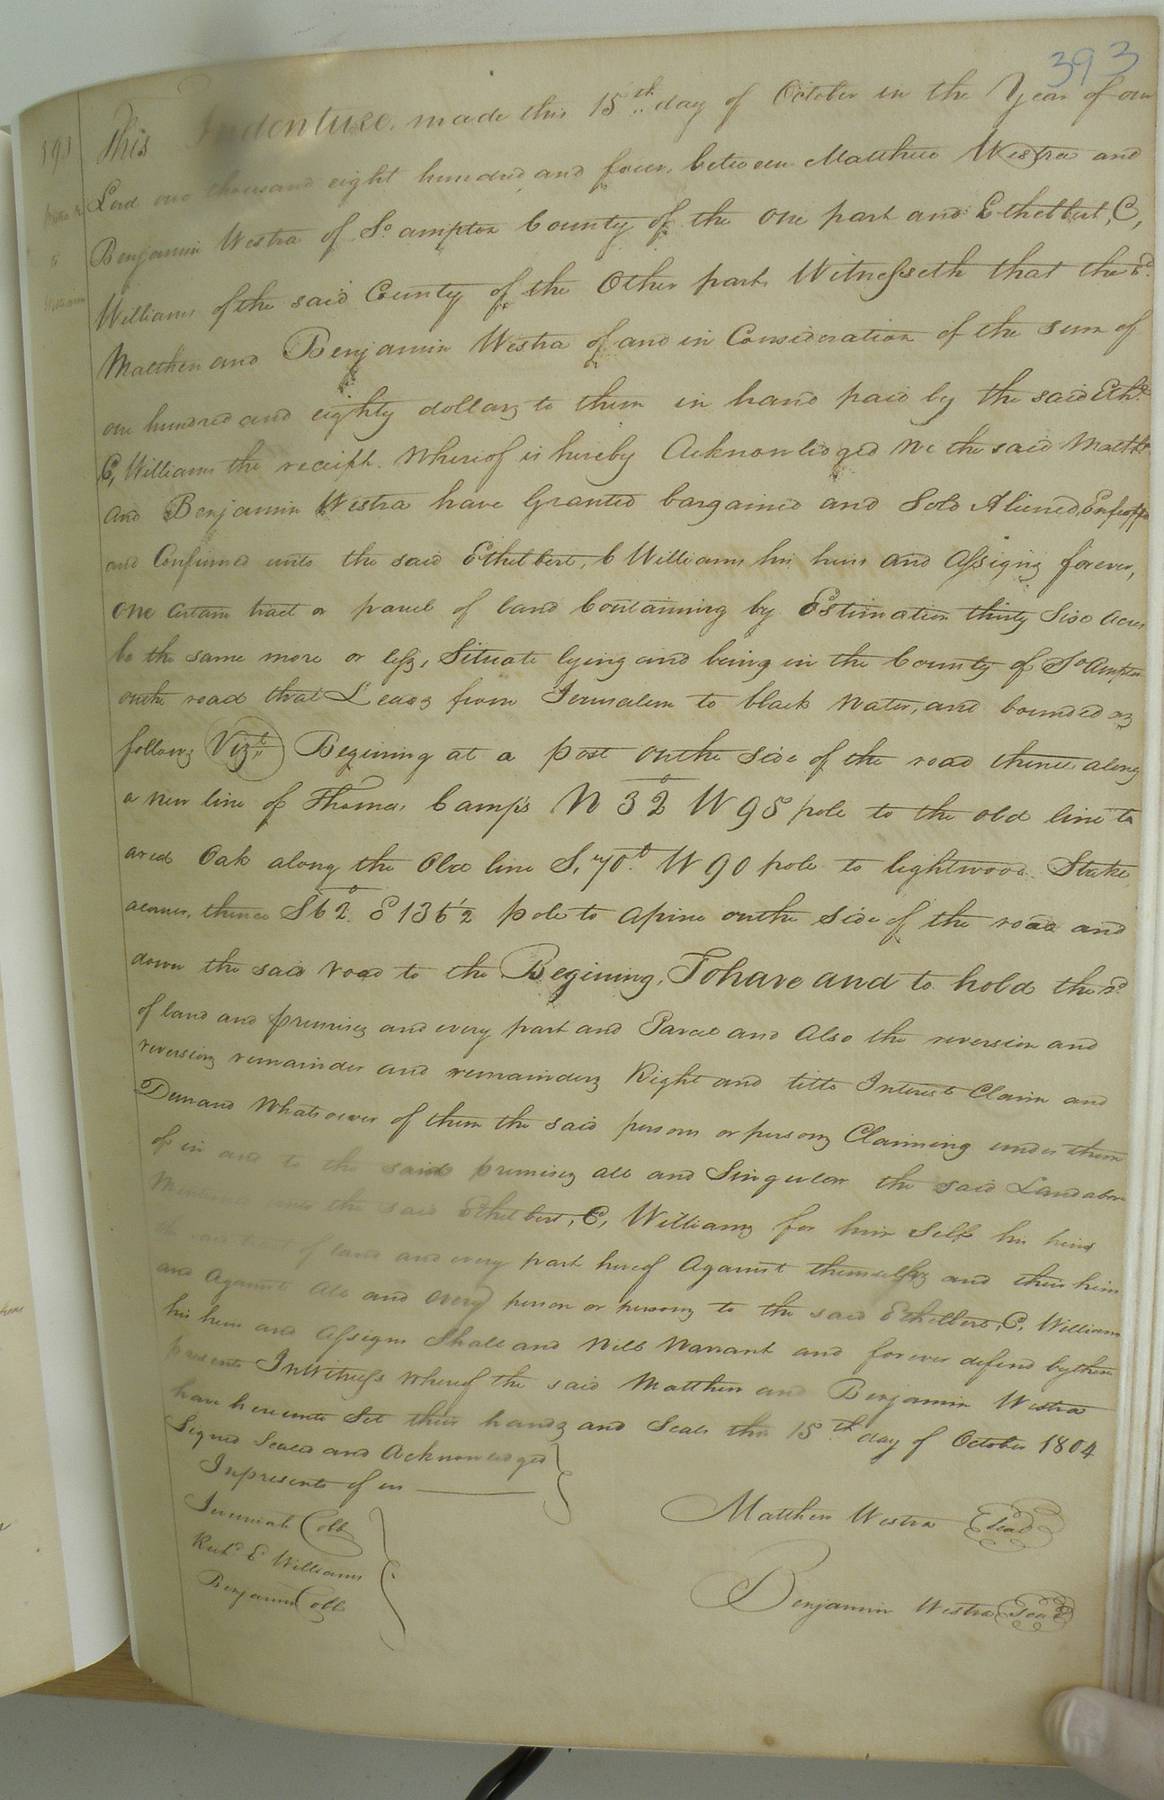 393
This Indenture, made this 15th day of October in the Year of our
Lord one thousand eight hundred and four, between Matthew Westra and
Benjamin Westra of So. ampton County of the one part and Ethelbert, C,
Williams of the said County of the Other part. Witnesseth that the sd.
Matthew and Benjamin Westra of and in Consideration of the sum of
one hundred and eighty dollars to them in hand paid by the said Eth.
C, Williams the receipt. Whereof is hereby Acknowledged We the said Matthew
and Benjamin Westra have Granted bargained and Sold Aliened, Enfeoffd
and Confirmed unto the said Ethelbert, C Williams his heirs and Assigns forever,
One certain tract or parcel of land Containing by Estimation thirty Six Acres
be the same more or less, Situate lying and being in the County of So Ampton
on the road that Leads from Jerusalem to black water, and bounded as
follows Vizt: Begining at a post on the side of the road thence along
a new line of Thomas Camp's N 32° W 95 pole to the old line to
a red Oak along the Old line S. 70° W 90 pole to lightwood Stake
a corner, thence S 62° E 136 1/2 pole to a pine on the Side of the road and
down the said road to the Begining, To have and to hold the sd.
of land and premises and every part and Parcel and Also the reversion and
reversions remainder and remainders Right and title Interest Claim and
Demand Whatsoever of them the said persons or persons Claiming under them
of in and to the said premises all and Singular the said Land above
the said Ethelbert, C, Williams for him Self his heirs
of land and every part hereof Against themselves and their heirs
and Against All and every person or persons to the said Ethelbert, C, Williams
his heirs and Assigns Shall and Will Warrant and forever defend by these
presents In Witness Whereof the said Matthew and Benjamin Westra
have hereunto Set their hands and Seals this 15th day of October 1804
Signed Sealed and Acknowledged
In presents of us
Jeremiah Cobb
Richd. E Williams
Benjamin Cobb
Matthew Westra Seal
Benjamin Westra Seal